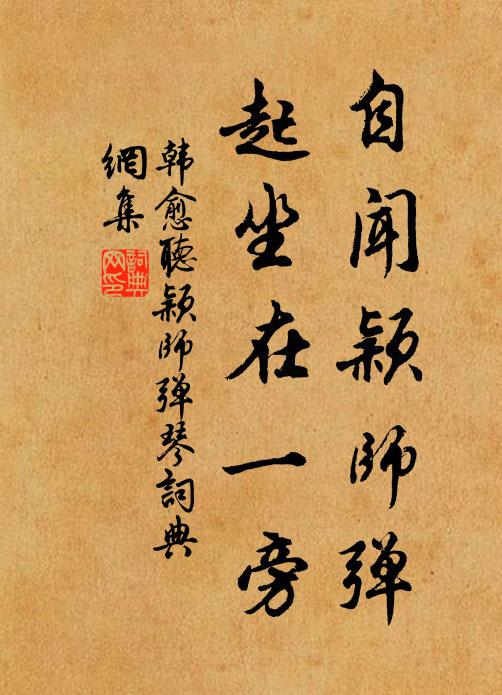 自闻颖师弹
起坐在一旁
韩愈聽颖師弹琴詞典
網集
詞典
网印